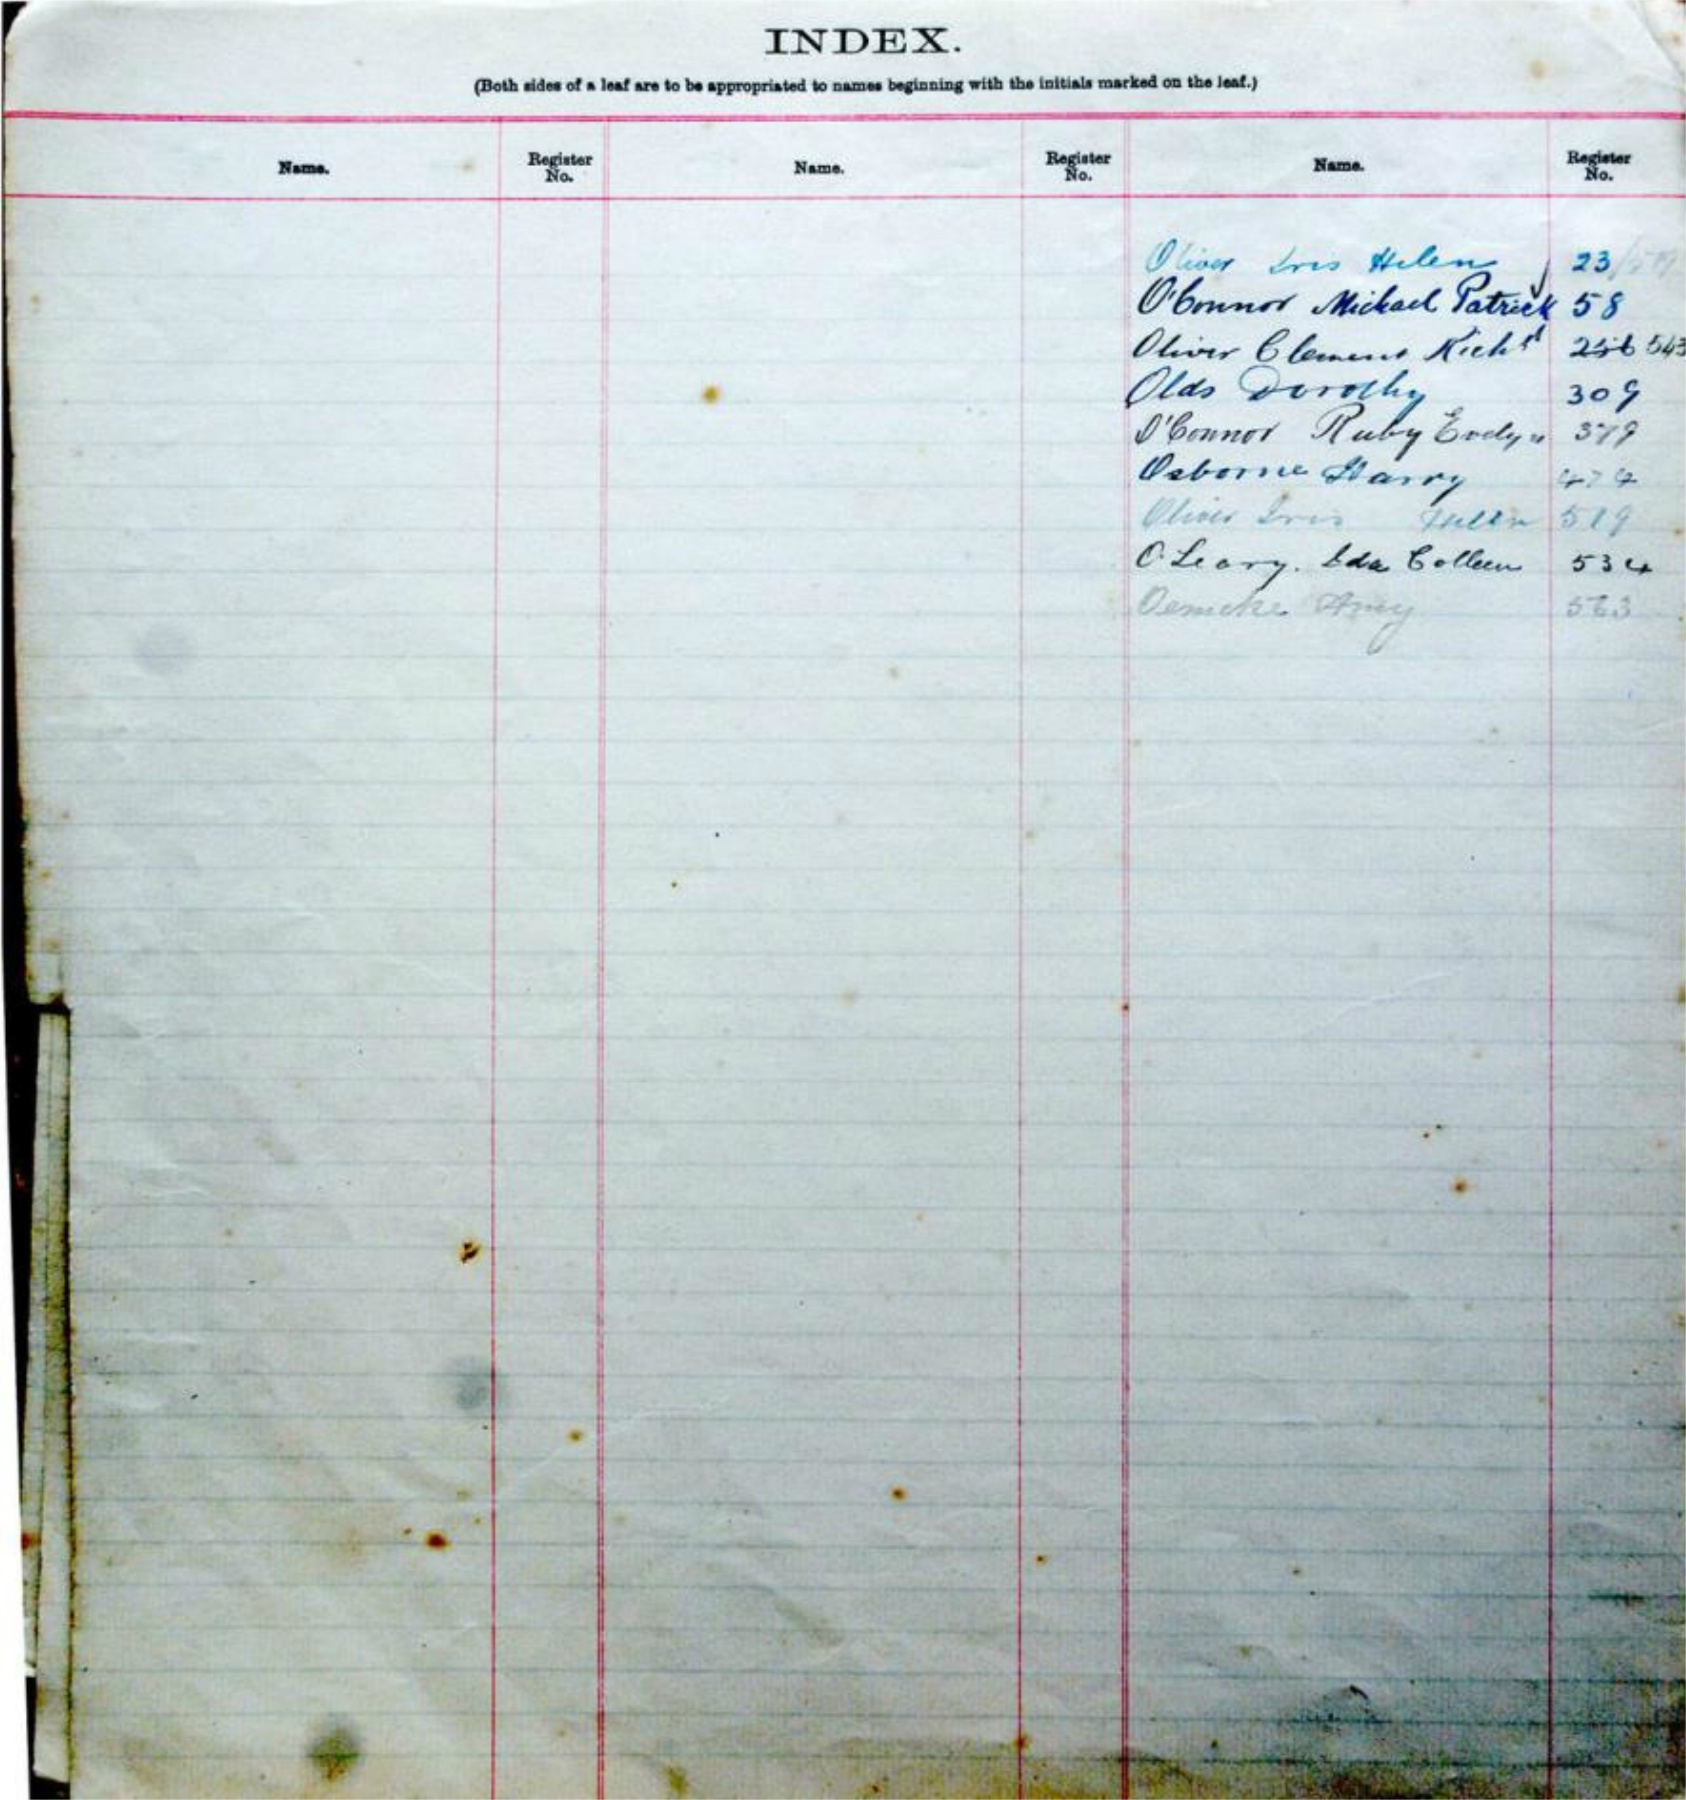 INDEX.
(Both sides of a leaf are to be appropriated to names beginning with the initials marked on the leaf.)
Name. Register No. Name. Register No. Name. Register No.
Oliver Iris Helen 23/519
O'Connor Michael Patrick 58
Oliver Clement Richd 256 543
Olds Dorothy 309
O'Connor Ruby Evelyn 379
Osborne Harry 474
Oliver Iris Helen 519
O'Leary. Ida Colleen 534
Amy 563